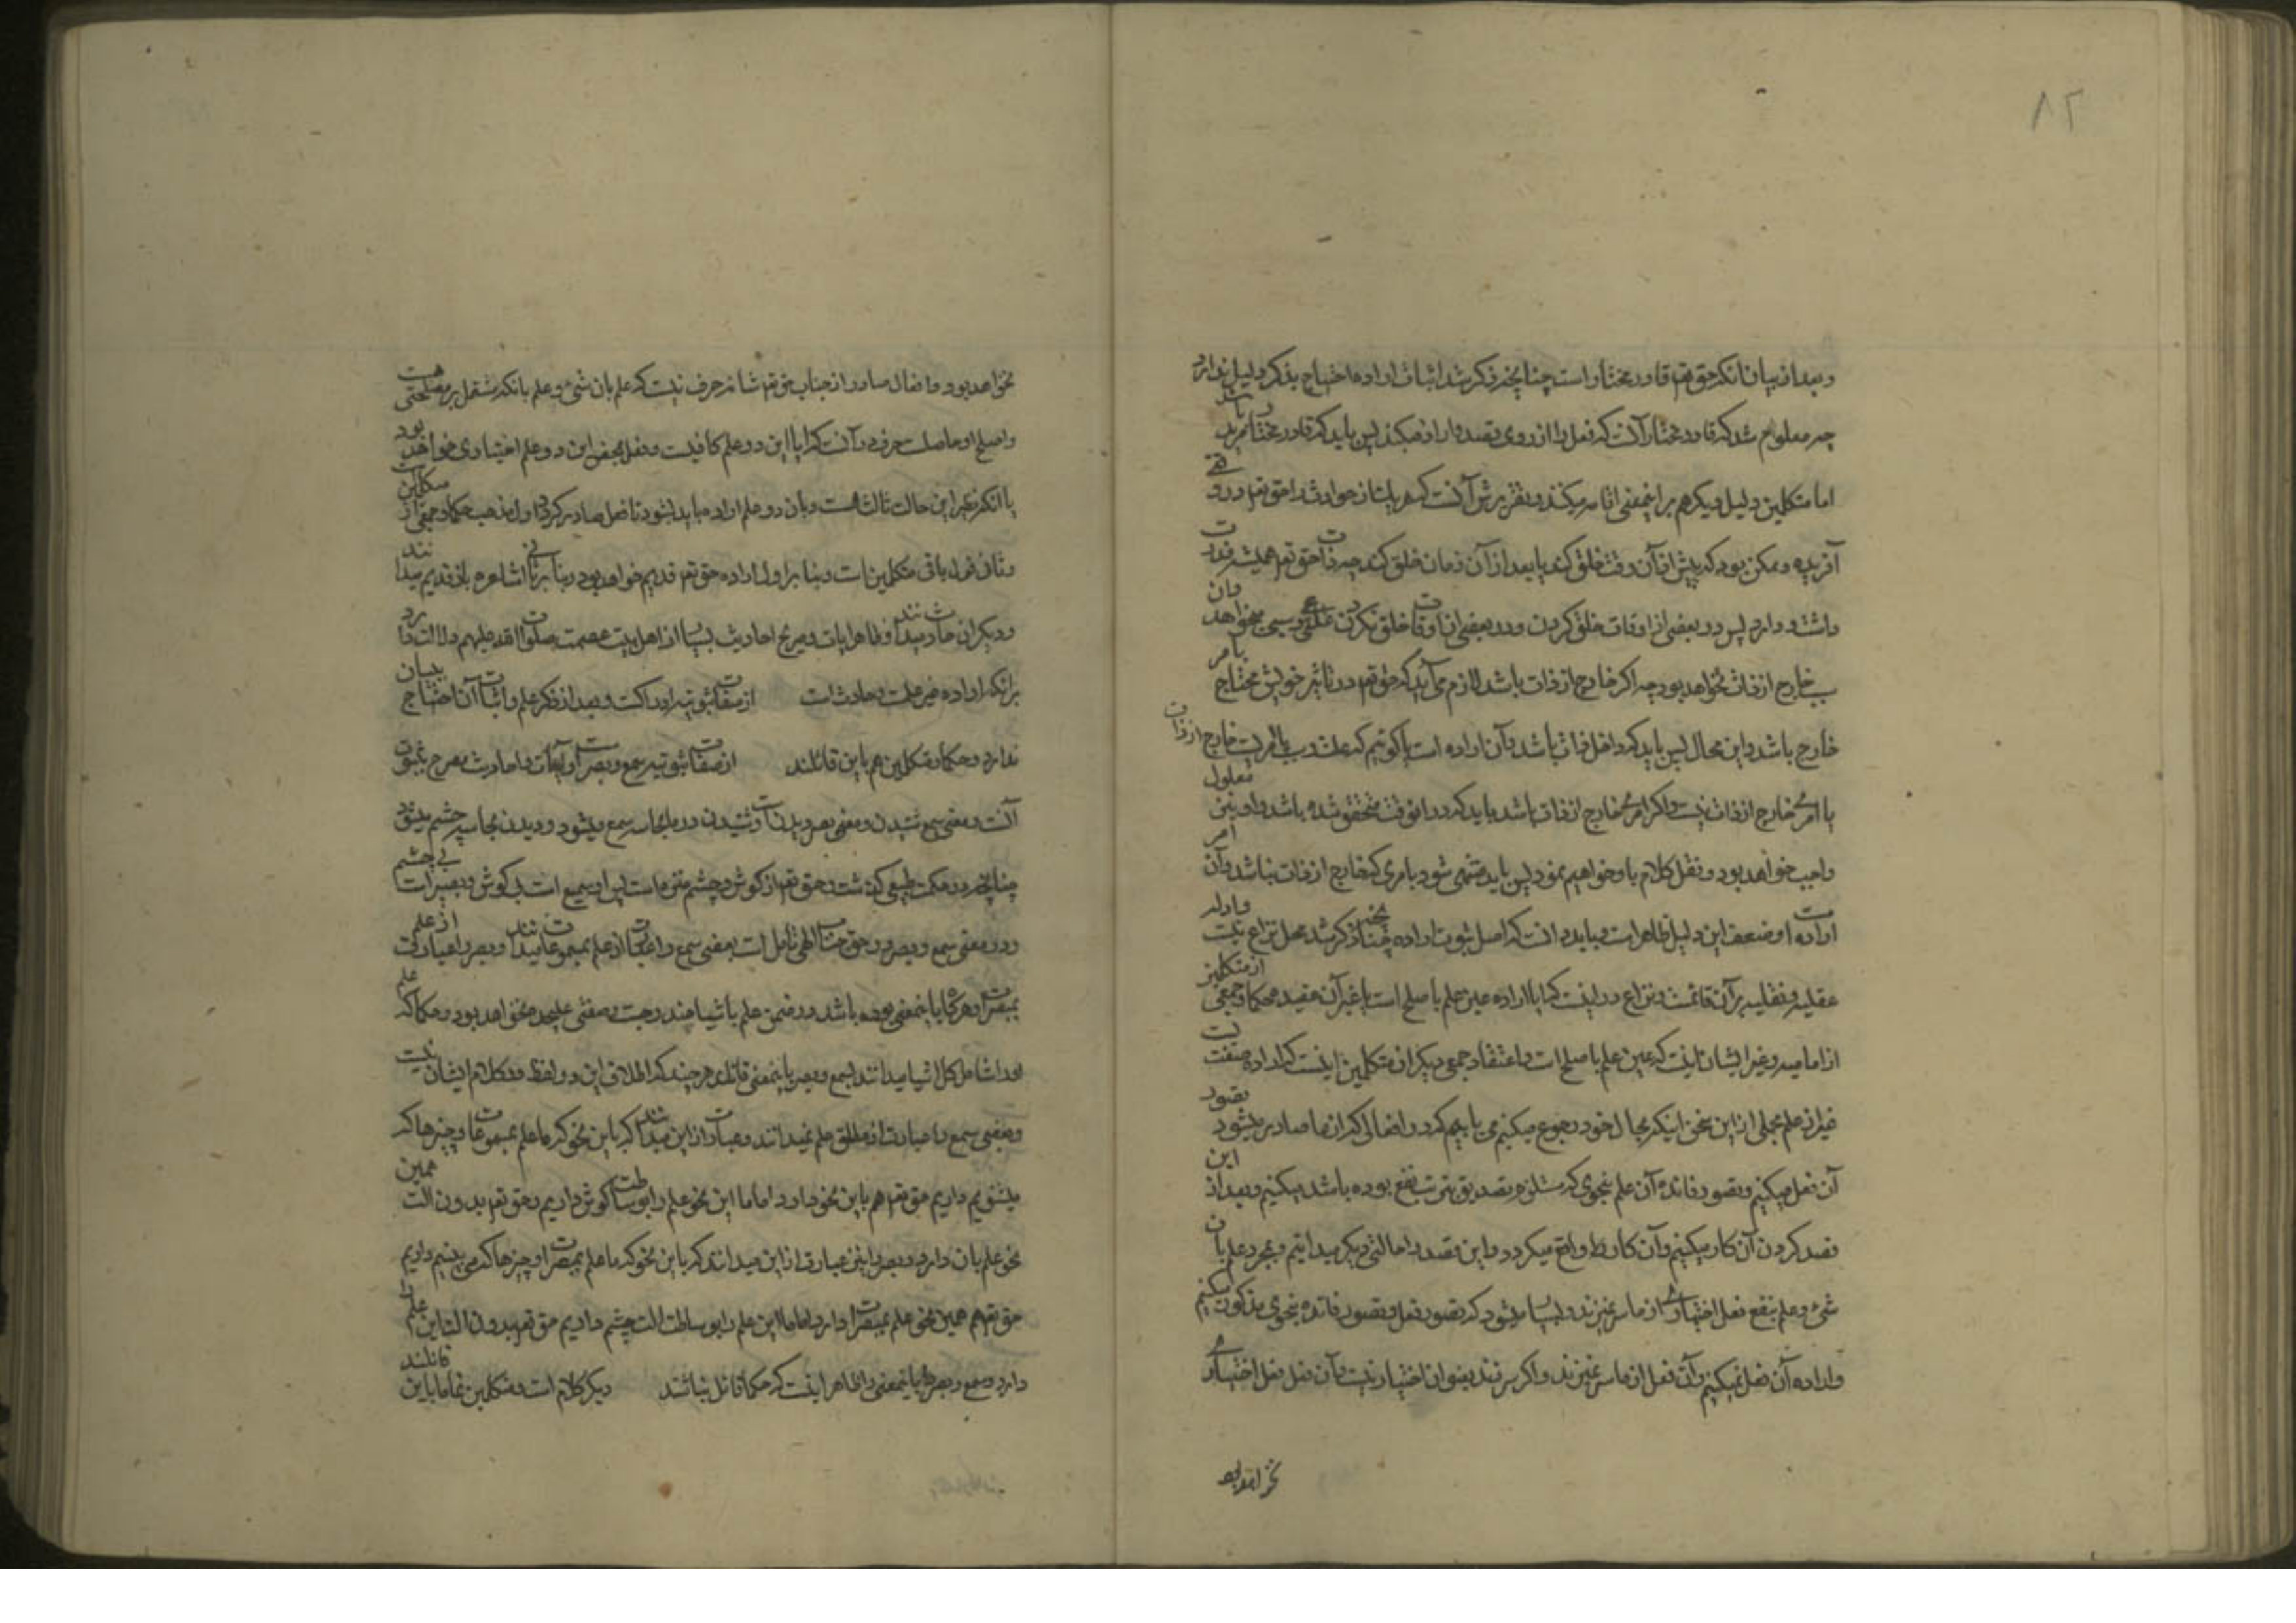 ۸۲
و بعد از بیان انکه حق تعم قادر مختار است چنانچه ذکر شد اثبات اراده احتیاج بذکر دلیل ندارد
چه معلوم شد که قادر مختار آنست که فعل را از روی قصد و اراده میکند پس باید که قادر مختار مرید باشد
اما متکلمین دلیل دیکر هم بر اینمعنی اقامه میکنند و تقریرش آنست که هر یک از حوادث را حق تعم در وقتی
آفریده و ممکن بود که پیش از آن وقت خلق کند یا بعد از آن زمان خلق کند چه ذات حق تعم همیشه قدرت
داشته و دارد پس در بعضی از اوقات خلق کردن و در بعضی از اوقات خلق نکردن علتی و سببی میخواهد و آن
سبب خارج از ذات نخواهد بود چه اکر خارج از ذات باشد لازم می آید که حق تعم در تاثیر خویش محتاج بامر
خارج باشد و این محال پس باید که داخل ذات باشد و آن اراده است یا کوئیم که علت و سبب یا امریست خارج از ذات
یا امر خارج از ذات نیست و اکر امر خارج از ذات باشد باید که در انوقت متحقق شده باشد و او نیز معلول
واجب خواهد بود و نقل کلام باو خواهیم نمود پس باید منتهی شود بامری که خارج از ذات نباشد و آن امر
اراده است و ضعف این دلیل ظاهر است و باید دانست که اصل ثبوت اراده چنانچه ذکر شد محل نزاع نیست و ادله
عقلیه و نقلیه بر آن قائمست و نزاع در اینست که ایا اراده عین علم باصلح است یا غیر آن عقیده حکما و جمعی از متکلمین
از امامیه و غیر ایشان اینست که عین علم باصلح است و اعتقاد جمعی دیکر از متکلمین اینست که اراده صفتیست
غیر از علم مجملی از این سخن اینکه بحال خود رجوع میکنیم می یابیم که در افعالی که از ما صادر میشود تصور
آن فعل میکنیم و تصور فائده آن علم بنحوی که مستلزم تصدیق بترتب نفع بوده باشد میکنیم و بعد از این
قصد کردن آن کار میکنیم و آن کار واقع میکردد و این قصد را حالتی دیکر میدانیم و بمجرد علم بان
شیء و علم بنفع فعل اختیاری از ما سر نمیزند و بسیار میشود که تصور فعل و تصور فائده بنحوی مذکور میکنیم
و اراده آن فعل نمیکنیم و آن فعل از ما سر نمیزند و اکر سر زند بعنوان اختیار نیست و آن فعل فعل اختیاری
نخواهد بود
نخواهد بود و افعال صادر از جناب حق تعم شانه حرف نیست که علم بان شیء و علم بانکه مشتمل بر مصلحتی هست
و اصلح او حاصل است حرف در آنست که ایا این دو علم کافیست و فعل بمحض این دو علم اختیاری خواهد بود
یا انکه غیر این حالت ثالث هست و بان دو علم اراده باید بشود تا فعل صادر کردد اول مذهب حکما و جمعی از متکلمین
و ثانی قول باقی متکلمین است و بنا بر اول اراده حق تعم قدیم خواهد بود و بنا بر ثانی اشاعره باز قدیم میدانند
و دیکران حادث میدانند و ظاهر ایات و صریح احادیث بسیار از اهل بیت عصمت صلوات الله علیهم دلالت دارد
بر انکه اراده غیر علمست و حادث است از صفات ثبوتیه ادراکست و بعد از ذکر علم و اثبات آن احتیاج بیان
ندارد و حکما و متکلمین هم باین قائلند از صفات ثبوتیه سمع و بصر است و آیات و احادیث مصرح بثبوت
آنست و معنی سمع شنیدن و معنی بصر دیدنست و شنیدن در ما بحاسه سمع میشود و دیدن بحاسه چشم میشود
چنانچه در حکمت طبیعی کذشت و حق تعم از کوش و چشم منزه است پس او سمیع است بی کوش و بصیر است بی چشم
و در معنی سمع و بصر در حق جناب الهی تامل است بعضی سمع را عبارت از علم بمسموعات میدانند و بصر را عبارت از علم
بمبصرات و هر کاه باینمعنی بوده باشد در ضمن علم باشیا مندرجست و صفتی علیحده نخواهد بود و حکما که علم
او را شامل کل اشیا میدانند بسمع و بصر باینمعنی قائلند هر چند که اطلاق این دو لفظ در کلام ایشان نیست
و بعضی سمع را عبارت از مطلق علم نمیدانند و عبارت از این میدانند که باین نحو که ما علم بمسموعات و چیزها که
میشنویم داریم حق تعم هم باین نحو دارد اما ما این نحو علم را بوساطت کوش داریم و حق تعم بدون الت همین
نحو علم بان دارد و بصر را نیز عبارت از این میدانند که باین نحو که ما علم بمبصرات و چیزها که می بینیم داریم
حق تعم هم همین نحو علم بمبصرات دارد اما ما این علم را بوساطت الت چشم داریم حق تعم بدون الت این علم را
دارد و سمع و بصر را باینمعنی ظاهر اینست که حکما قائل نباشند دیکر کلام است و متکلمین تماما باین قائلند